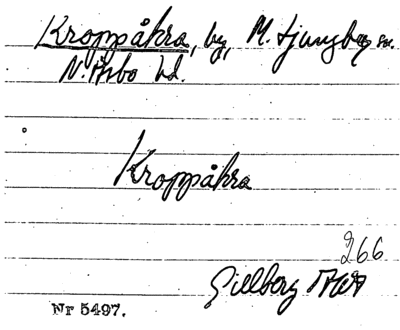 Kroppåkra, by, M. Ljungby sn.
N. Åsbo hd.
Kroppåkra
266
Gillberg
Nr 5497.